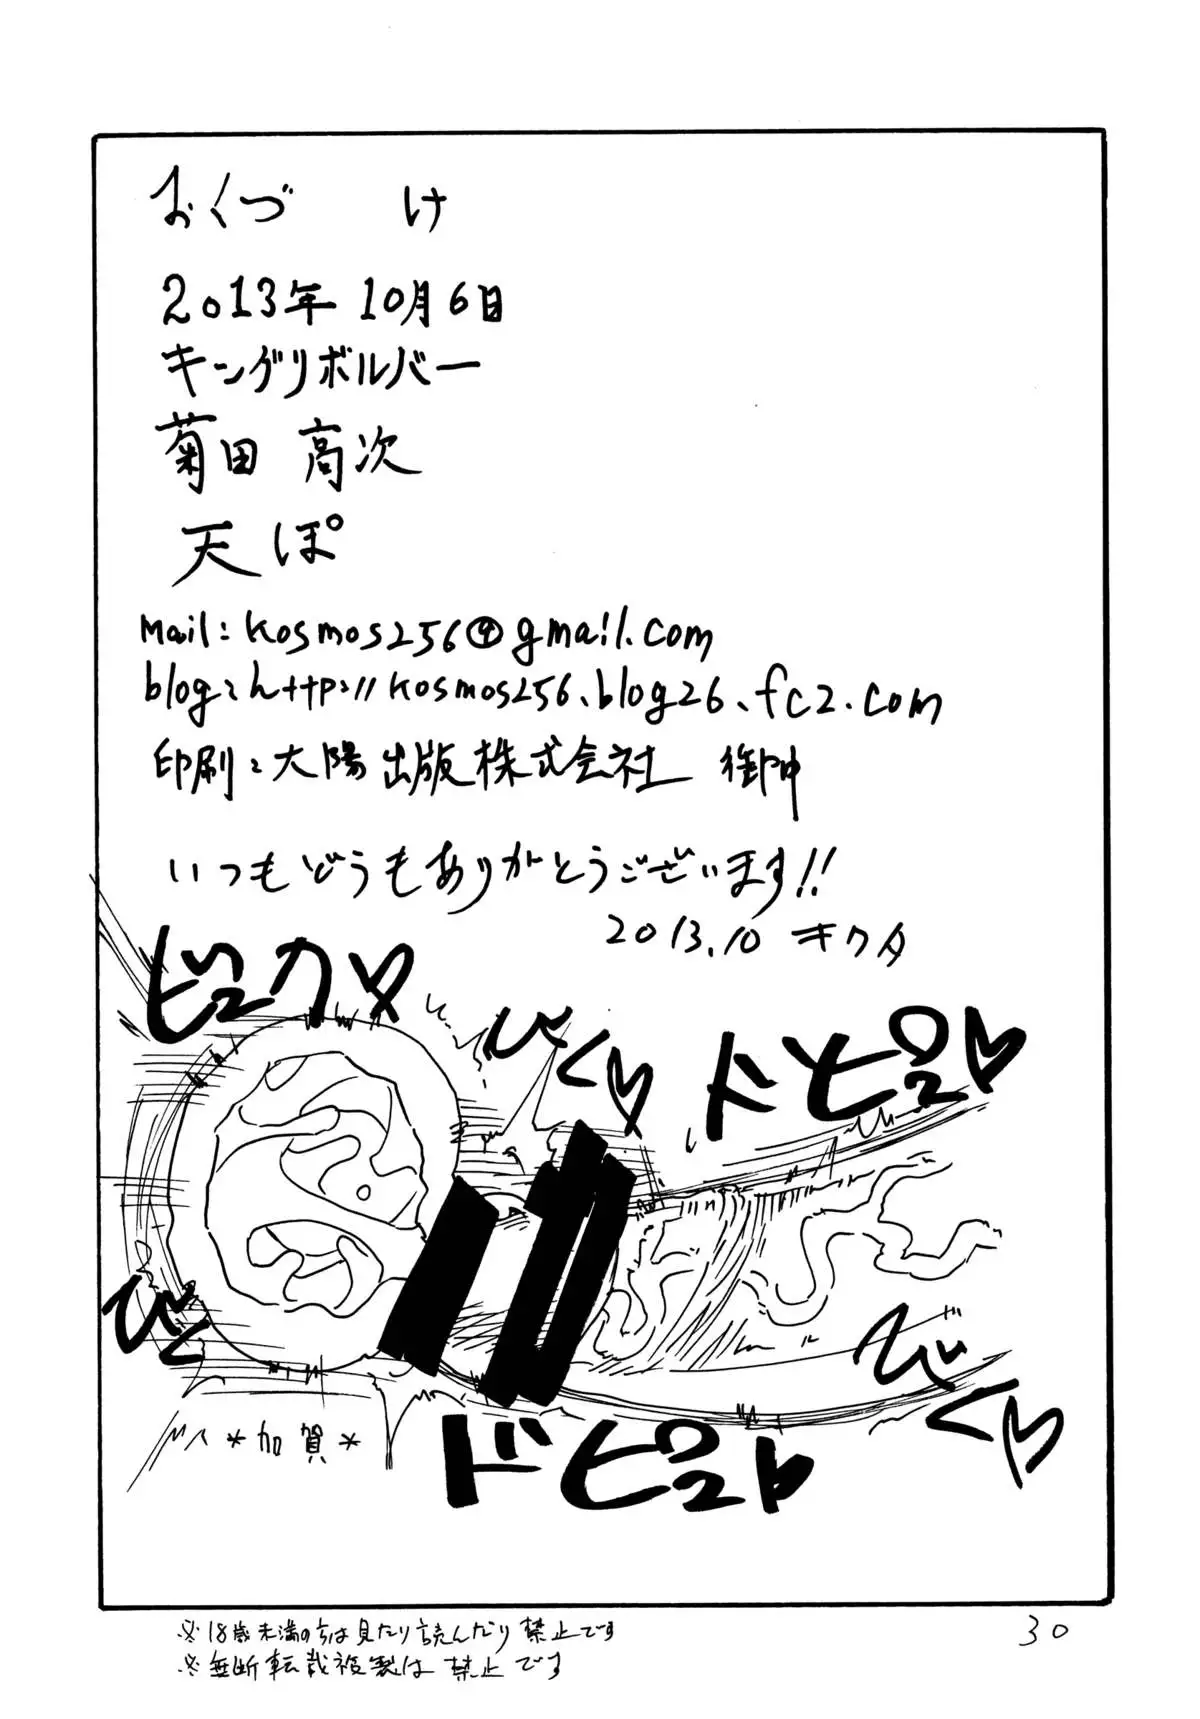 おくづけ
2013年10月6日
キングリボルバー
菊田 高次
天ぽ
mail:kosmos256@gmail.com
blog:http://kosmos256.blog26.fc2.com
印刷:大陽出版株式会社 御中
いつもどうもありがとうございます!!
2013.10 キクタ
ビュク♡
びく♡
ドピュ♡
びく
びくっ♡
*加賀*
ドピュっ
※18歳未満の方は見たり読んだり禁止です
※無断転載複製は禁止です
30